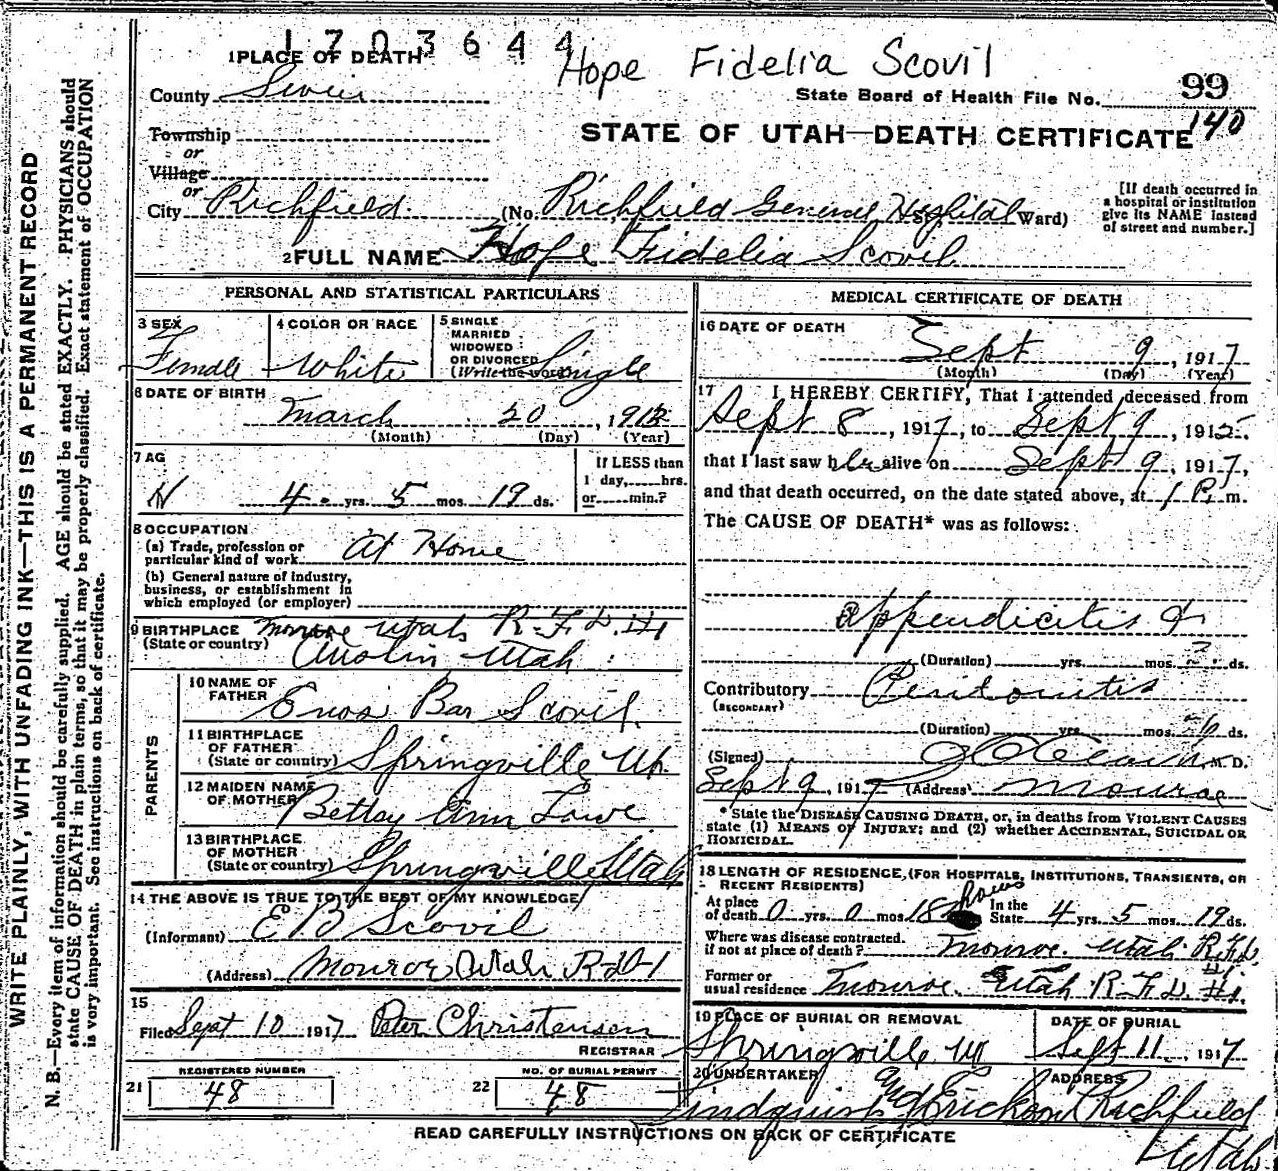 1703644
Hope Fidelia Scovil
1 PLACE OF DEATH
County Sevier
State Board of Health File No. 99
140
Township
or
Village
or
STATE OF UTAH—DEATH CERTIFICATE
City Richfield (No. Richfield General Hospital Ward)
[If death occurred in
a hospital or institution
give its NAME instead
of street and number.]
2 FULL NAME Hope Fidelia Scovil
PERSONAL AND STATISTICAL PARTICULARS
3 SEX
Female
4 COLOR OR RACE
White
5 SINGLE
MARRIED
WIDOWED
OR DIVORCED
(Write the word) Single
6 DATE OF BIRTH
March 20, 1913
(Month) (Day) (Year)
7 AG
4 yrs. 5 mos. 19 ds.
If LESS than
1 day,......hrs.
or......min.?
8 OCCUPATION
(a) Trade, profession or
particular kind of work At Home
(b) General nature of industry,
business, or establishment in
which employed (or employer)
9 BIRTHPLACE Monroe Utah R.F.D. #1
(State or country) Austin Utah
PARENTS
10 NAME OF
FATHER Enos Bar Scovil
11 BIRTHPLACE
OF FATHER
(State or country) Springville Ut.
12 MAIDEN NAME
OF MOTHER Betsy Ann Lowe
13 BIRTHPLACE
OF MOTHER
(State or country) Springville Utah
14 THE ABOVE IS TRUE TO THE BEST OF MY KNOWLEDGE
(Informant) E B Scovil
(Address) Monroe Utah R-D-1
15
Filed Sept 10 1917 Peter Christensen
REGISTRAR
REGISTERED NUMBER
21 48
NO. OF BURIAL PERMIT
22 48
MEDICAL CERTIFICATE OF DEATH
16 DATE OF DEATH
Sept 9, 1917
(Month) (Day) (Year)
17 I HEREBY CERTIFY, That I attended deceased from
Sept 8, 1917, to Sept 9, 191
that I last saw her alive on Sept 9, 1917,
and that death occurred, on the date stated above, at 1 P. m.
The CAUSE OF DEATH* was as follows:
Appendicitis &
(Duration) yrs. mos. ds.
Contributory Peritonitis
(SECONDARY)
(Duration) yrs. mos. ds.
(Signed) M. D.
Sept 9, 1917 (Address) Monroe
*State the DISEASE CAUSING DEATH, or, in deaths from VIOLENT CAUSES
state (1) MEANS OF INJURY; and (2) whether ACCIDENTAL, SUICIDAL OR
HOMICIDAL.
18 LENGTH OF RESIDENCE, (FOR HOSPITALS, INSTITUTIONS, TRANSIENTS, OR
RECENT RESIDENTS)
At place
of death 0 yrs. 0 mos. 18 hours
In the
State 4 yrs. 5 mos. 19 ds.
Where was disease contracted.
if not at place of death? Monroe. Utah R.F.D. #1.
Former or
usual residence Monroe. Utah R.F.D. #1.
19 PLACE OF BURIAL OR REMOVAL
Springville Ut
DATE OF BURIAL
Sept 11, 1917
20 UNDERTAKER
Lindquist and Erickson
ADDRESS
Richfield
Utah
READ CAREFULLY INSTRUCTIONS ON BACK OF CERTIFICATE
WRITE PLAINLY, WITH UNFADING INK—THIS IS A PERMANENT RECORD
N. B.—Every item of information should be carefully supplied. AGE should be stated EXACTLY. PHYSICIANS should
state CAUSE OF DEATH in plain terms, so that it may be properly classified. Exact statement of OCCUPATION
is very important. See instructions on back of certificate.